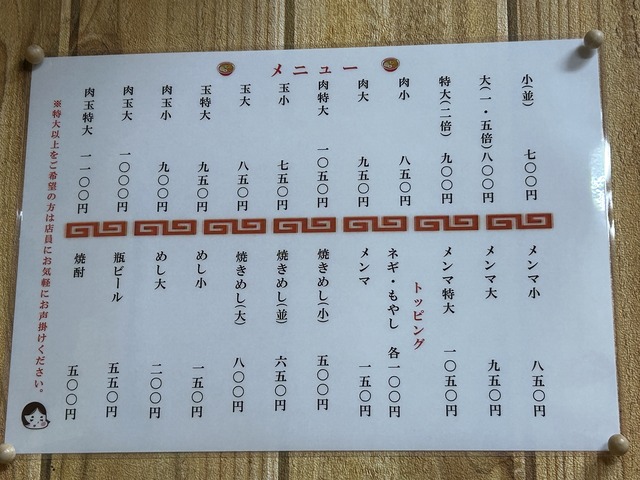 メニュー
小(並) 七〇〇円
大(一・五倍) 八〇〇円
特大(二倍) 九〇〇円
肉小 八五〇円
肉大 九五〇円
肉特大 一〇五〇円
玉小 七五〇円
玉大 八五〇円
玉特大 九五〇円
肉玉小 九〇〇円
肉玉大 一〇〇〇円
肉玉特大 一一〇〇円
メンマ小 八五〇円
メンマ大 九五〇円
メンマ特大 一〇五〇円
トッピング
ネギ・もやし 各一〇〇円
メンマ 一五〇円
焼きめし(小) 五〇〇円
焼きめし(並) 六五〇円
焼きめし(大) 八〇〇円
めし小 一五〇円
めし大 二〇〇円
瓶ビール 五五〇円
焼酎 五〇〇円
※特大以上をご希望の方は店員にお気軽にお声掛けください。